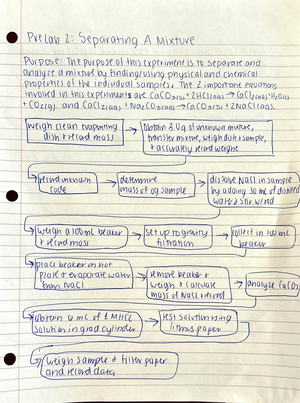 Prelab 2: Separating A Mixture
Purpose: The purpose of this experiment is to separate and
analyze a mixture by finding/using physical and chemical
properties of the individual samples. The 2 important equations
involved in this experiments are CaCO3(s) + 2HCl(aq) → CaCl2(aq) + H2O(l)
+ CO2(g) and CaCl2(aq) + Na2CO3(aq) → CaCO3(s) + 2NaCl(aq).
weigh clean evaporating
dish + record mass
obtain 3.0g of unknown mixture,
transfer mixture, weigh dish + sample,
+ accurately record weight
record unknown
code
determine
mass of og sample
dissolve NaCl in sample
by adding 30 mL of distilled
water + stir
weigh a 100 mL beaker
+ record mass
set up to gravity
filtration
collect in 100 mL
beaker
place beaker on hot
plate + evaporate water
from NaCl
remove beaker +
weigh + calculate
mass of NaCl record
analyze CaCO3
obtain 6 mL of 1 M HCl
solution in grad cylinder
test solution using
litmus paper
weigh sample + filter paper
and record data